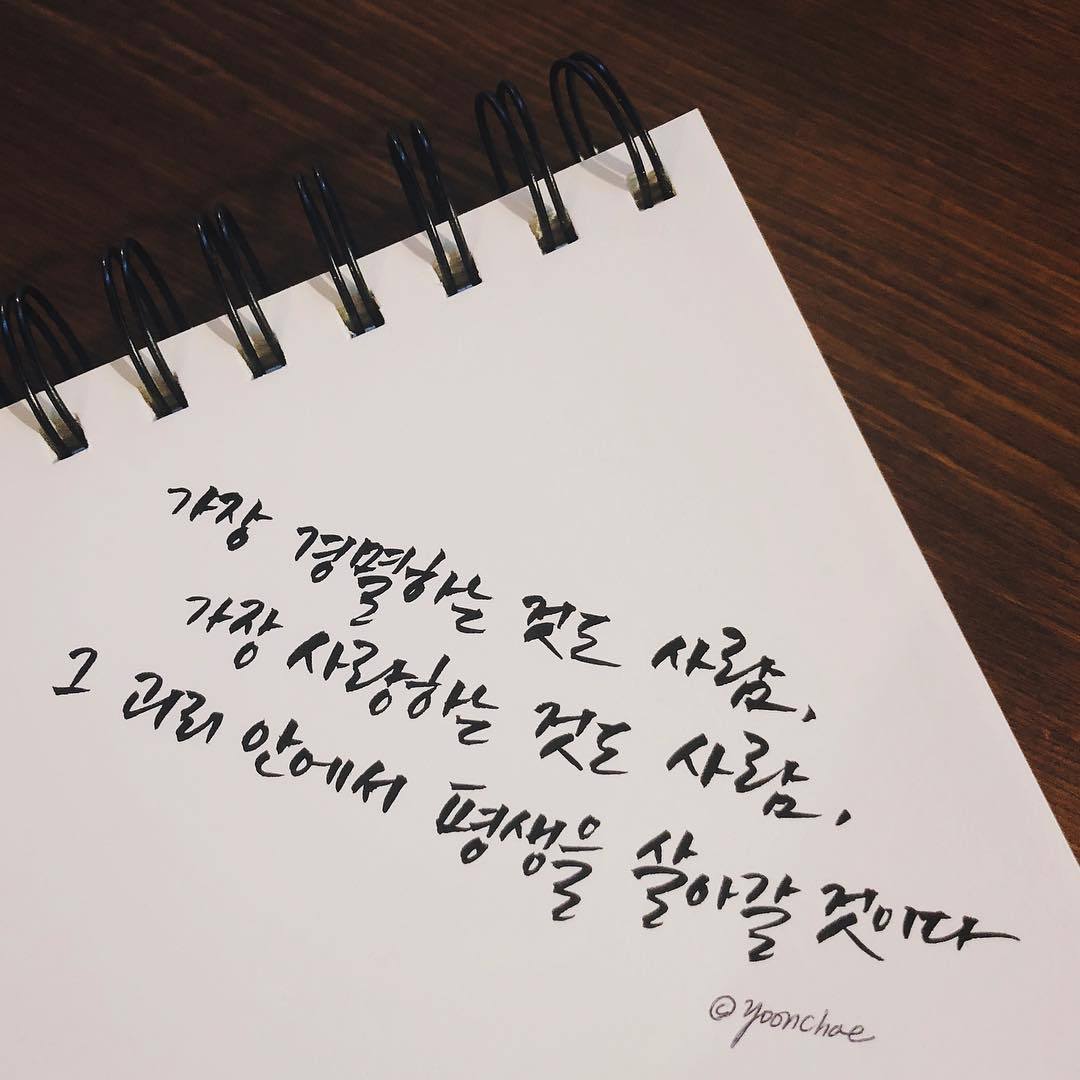 가장 경멸하는 것도 사람,
가장 사랑하는 것도 사람,
그 괴리 안에서 평생을 살아갈 것이다
©yoonchae